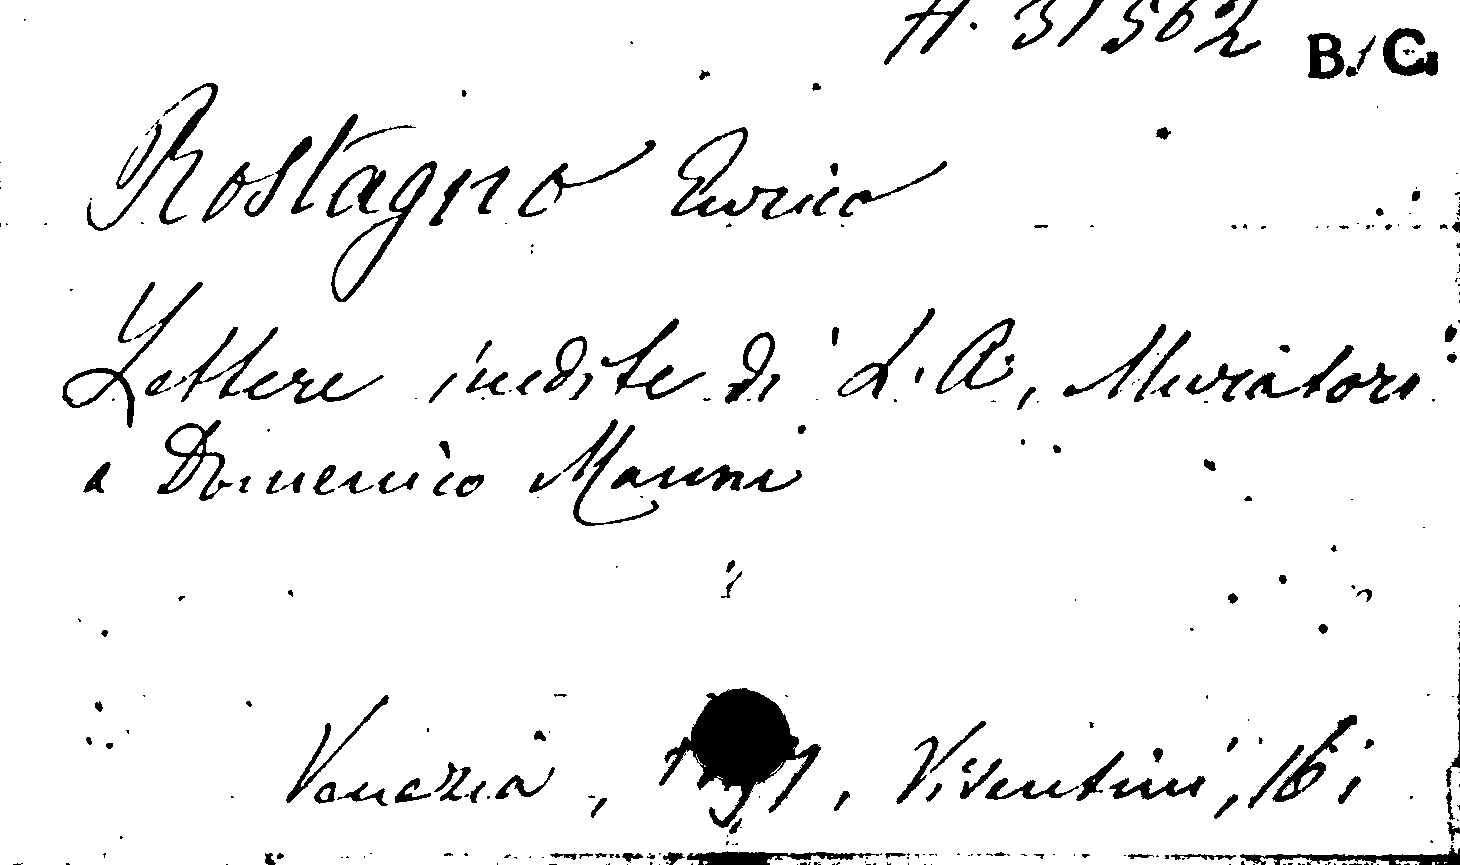 A. 31562 B. C.
Rostagno Enrico
Lettere inedite di L. A. Muratori
a Domenico Manni
Venezia, Visentini, 16;